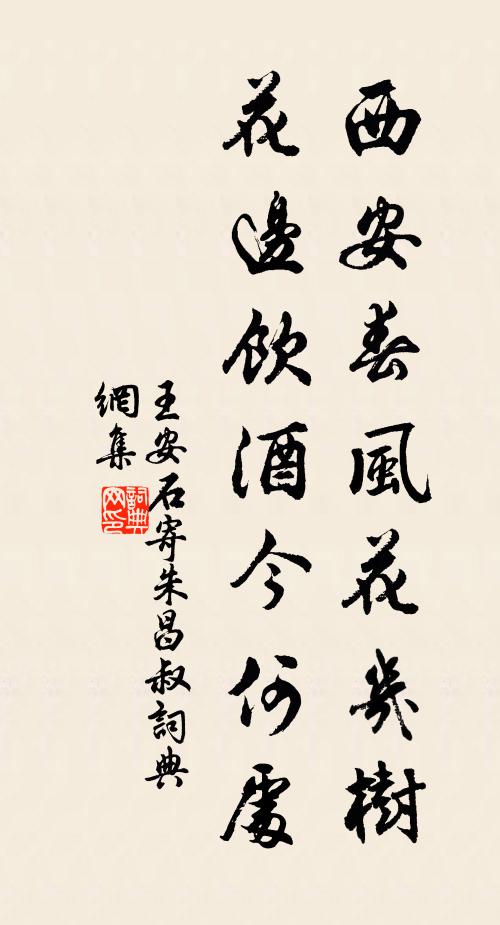 西安春風花幾樹
花邊飲酒今何處
王安石寄朱昌叔詞典
網集
詞典
网